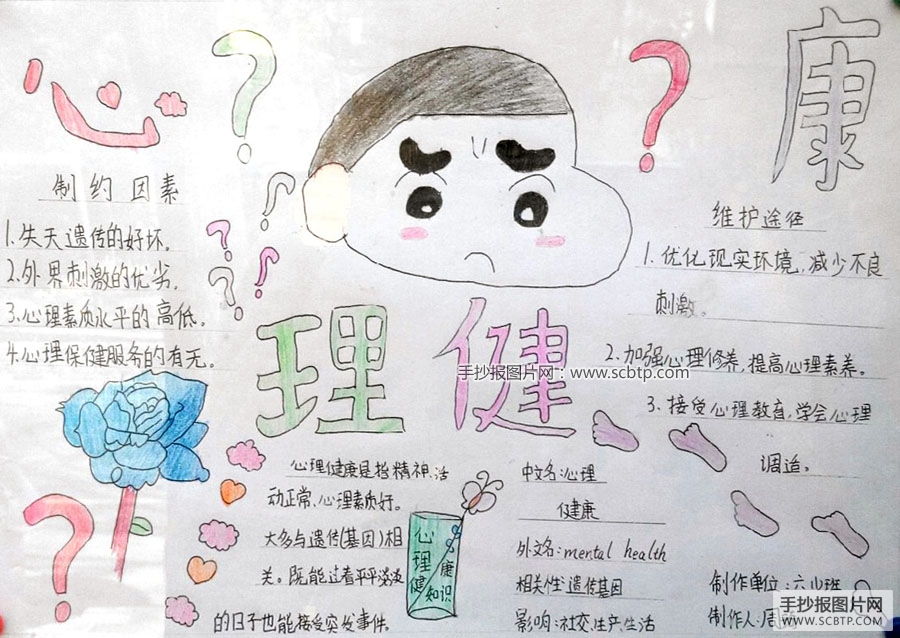 心
康
制约因素
1.先天遗传的好坏.
2.外界刺激的优劣.
3.心理素质水平的高低。
4.心理保健服务的有无。
维护途径
1.优化现实环境,减少不良
刺激。
2.加强心理修养,提高心理素养。
3.接受心理教育,学会心理
调适。
理 健
手抄报图片网:www.scbtp.com
心理健康是指精神、活
动正常、心理素质好。
大多与遗传(基因)相
关。既能过着平平淡淡
的日子也能接受突发事件.
心理健康知识
中文名:心理
健康
外文名:mental health
相关性:遗传基因
影响:社交、生产、生活
制作单位:六少班
制作人:周
手抄报图片网
WWW.SCBTP.COM